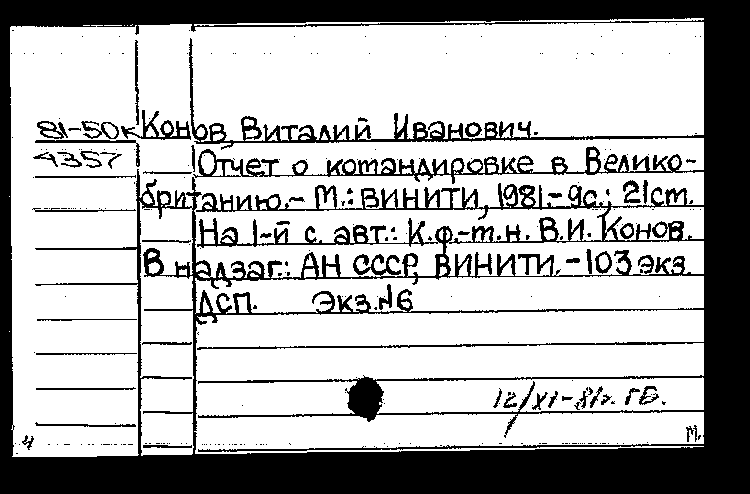 81-50к Конов, Виталий Иванович.
4357 Отчет о командировке в Велико-
британию.- М.: ВИНИТИ, 1981.- 9с.; 21см.
На 1-й с. авт.: К.ф.-м.н. В.И. Конов.
В надзаг.: АН СССР, ВИНИТИ.-103 экз.
ДСП. Экз.№6
12/XI-81г. ГБ.
4 М.